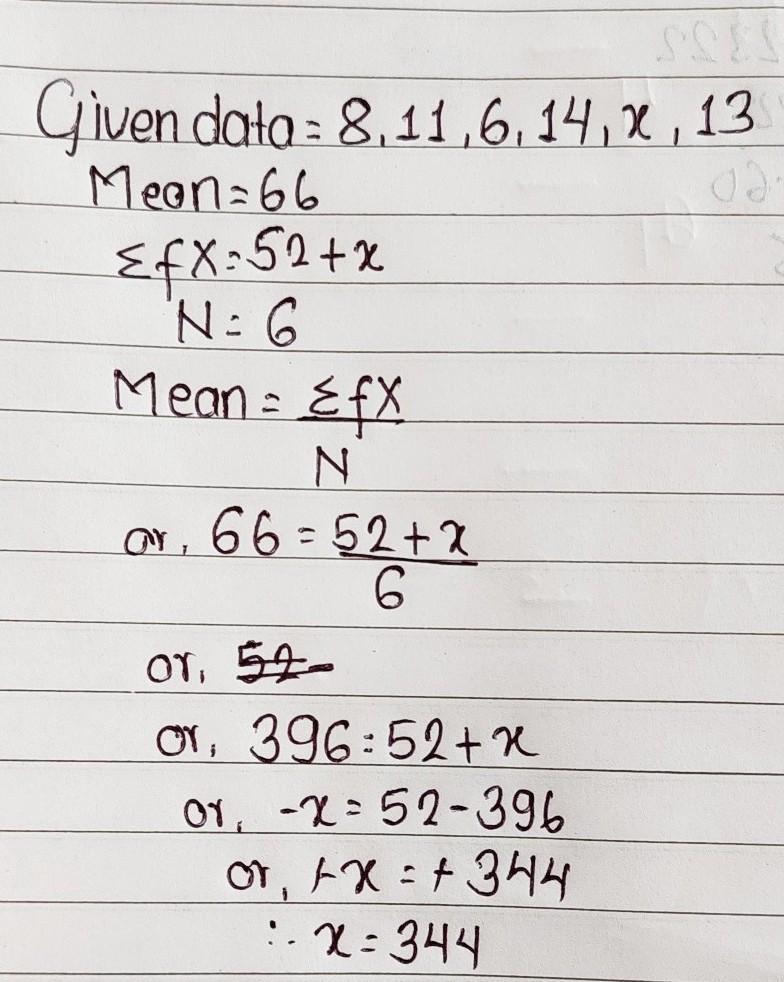 Given data = 8, 11, 6, 14, x, 13
Mean = 66
ΣfX = 52 + x
N = 6
Mean = ΣfX
N
or, 66 = 52 + x
6
or, 52-
or, 396 = 52 + x
or, -x = 52 - 396
or, +x = + 344
∴ x = 344